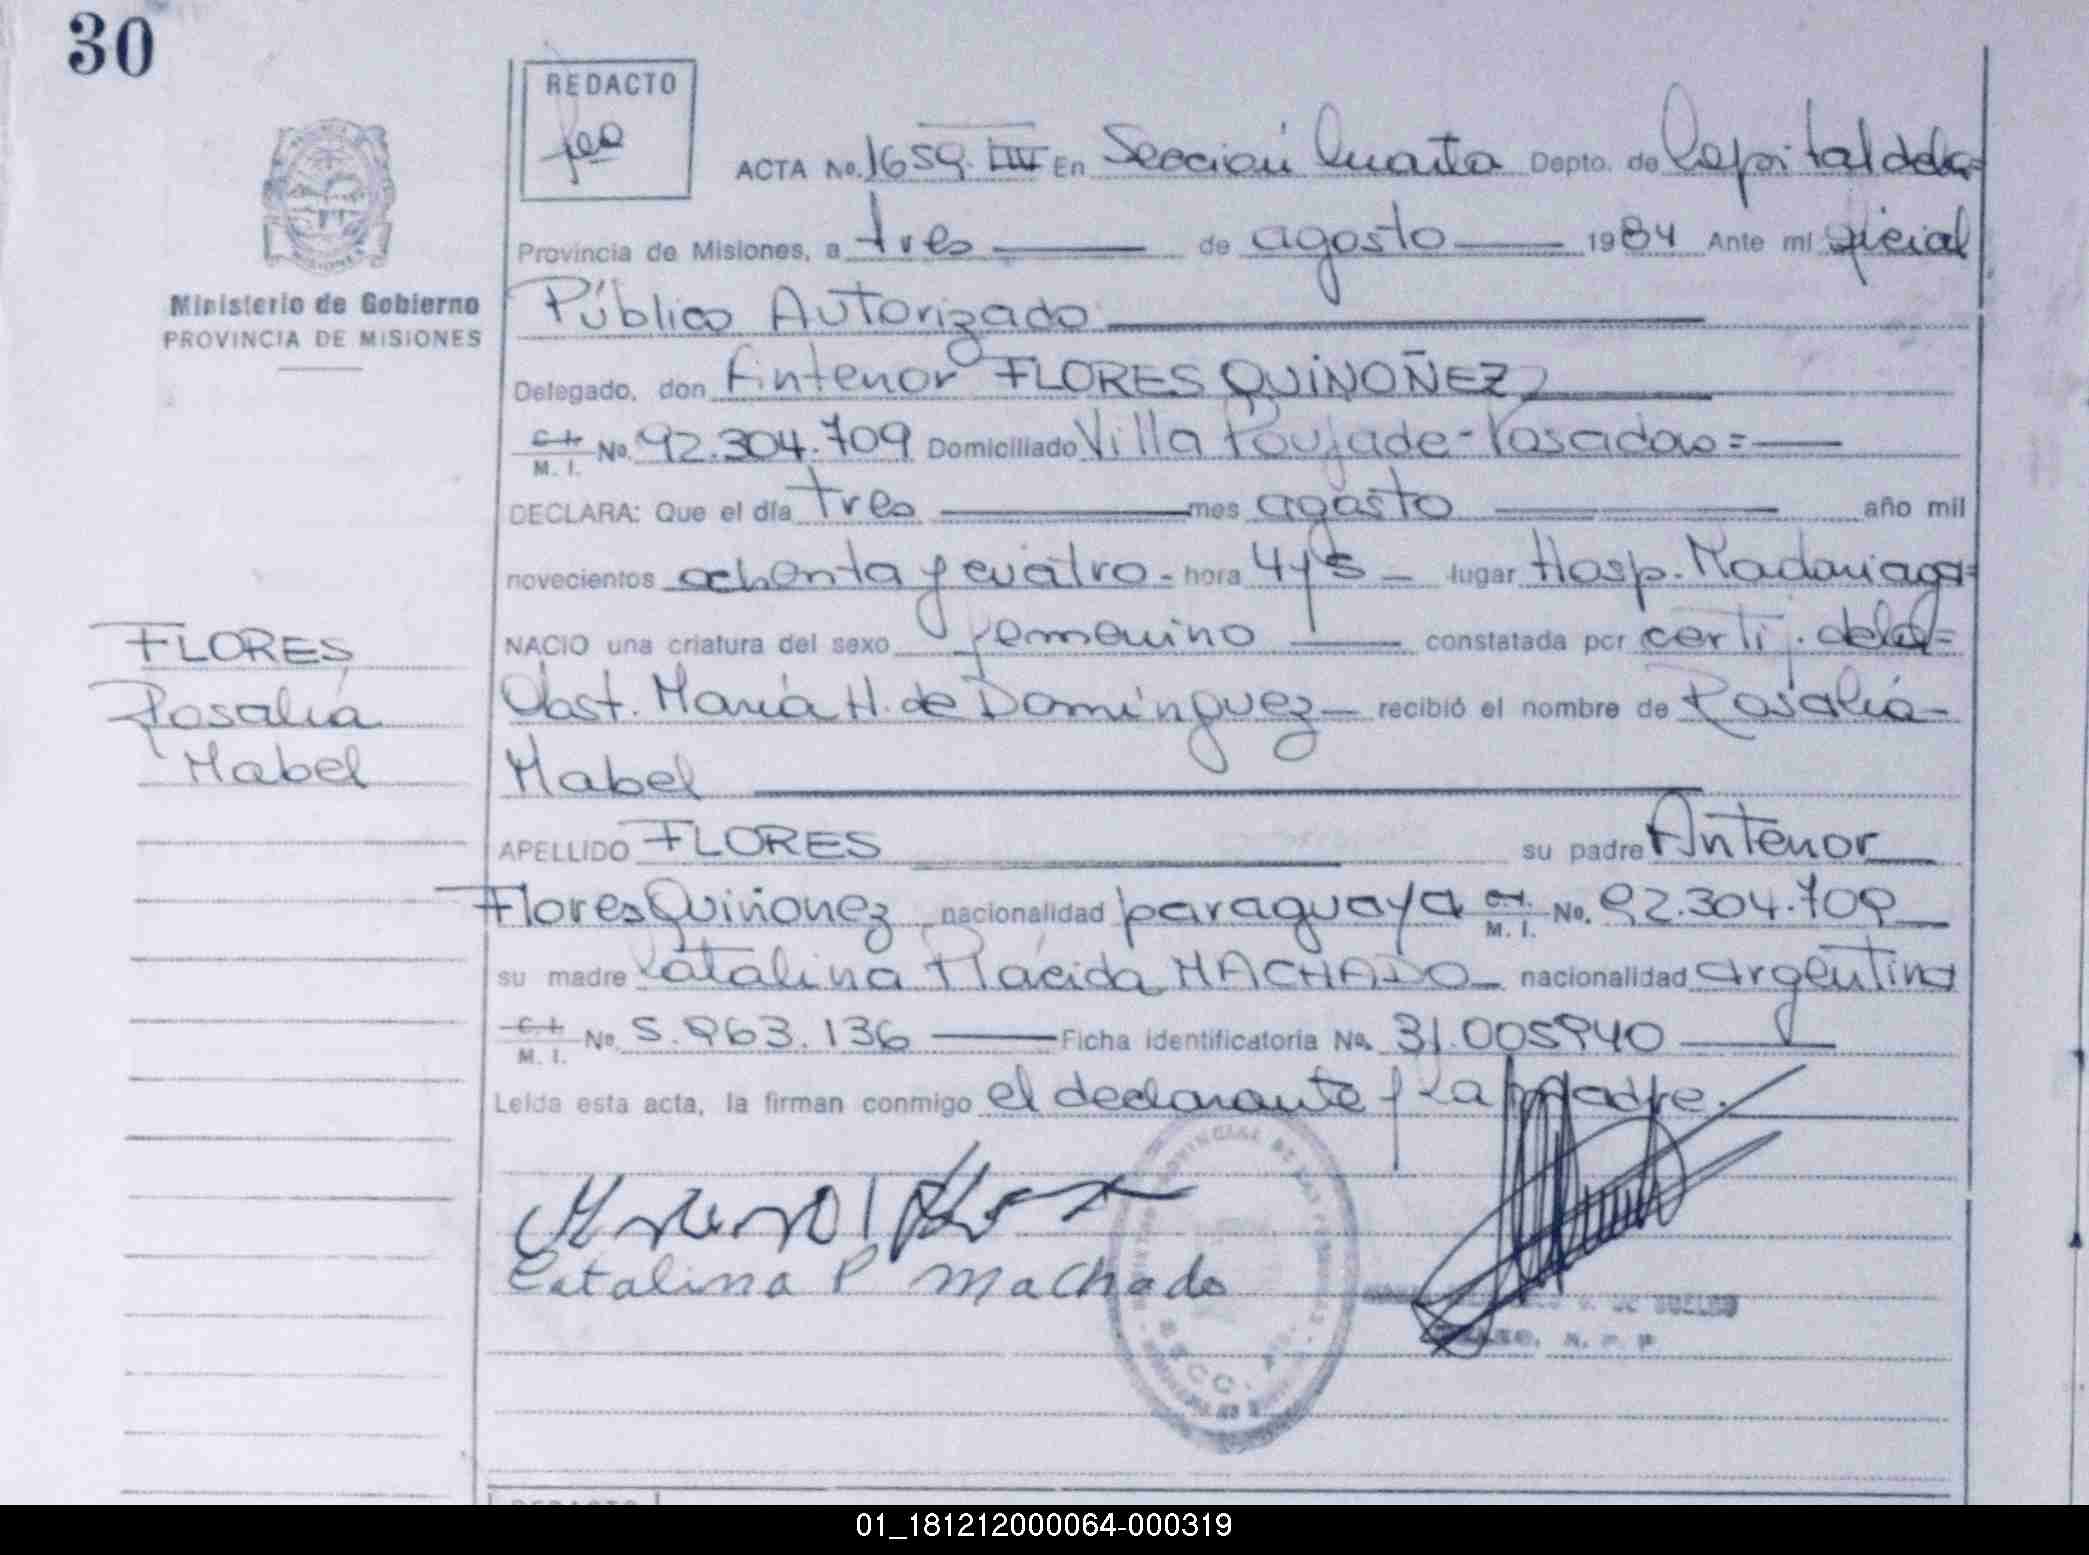 30
REDACTO
ACTA No. 1659. III En Sección Cuarta Depto. de Capital de la=
Provincia de Misiones, a tres de agosto 1984 Ante mi oficial
Público Autorizado
Delegado, don Antenor FLORES QUIÑOÑEZ
C.I. M. I. No. 92.304.709 Domiciliado Villa Poujade-Posadas=
DECLARA: Que el día tres mes agosto año mil
novecientos ochenta y cuatro - hora 4 y 5 lugar Hosp. Madariaga=
NACIO una criatura del sexo femenino constatada por certif. de la=
Obst. María H. de Domínguez recibió el nombre de Rosalía
Mabel
APELLIDO FLORES su padre Antenor
Flores Quiñonez nacionalidad paraguaya C.I. M. I. No. 92.304.709
su madre Catalina Plácida MACHADO nacionalidad argentina
C.I. M. I. No. 5.963.136 Ficha identificatoria No. 31.005940
Leída esta acta, la firman conmigo el declarante y la madre.
Catalina P Machado
Ministerio de Gobierno
PROVINCIA DE MISIONES
FLORES
Rosalía
Mabel
REDACTO
01_181212000064-000319